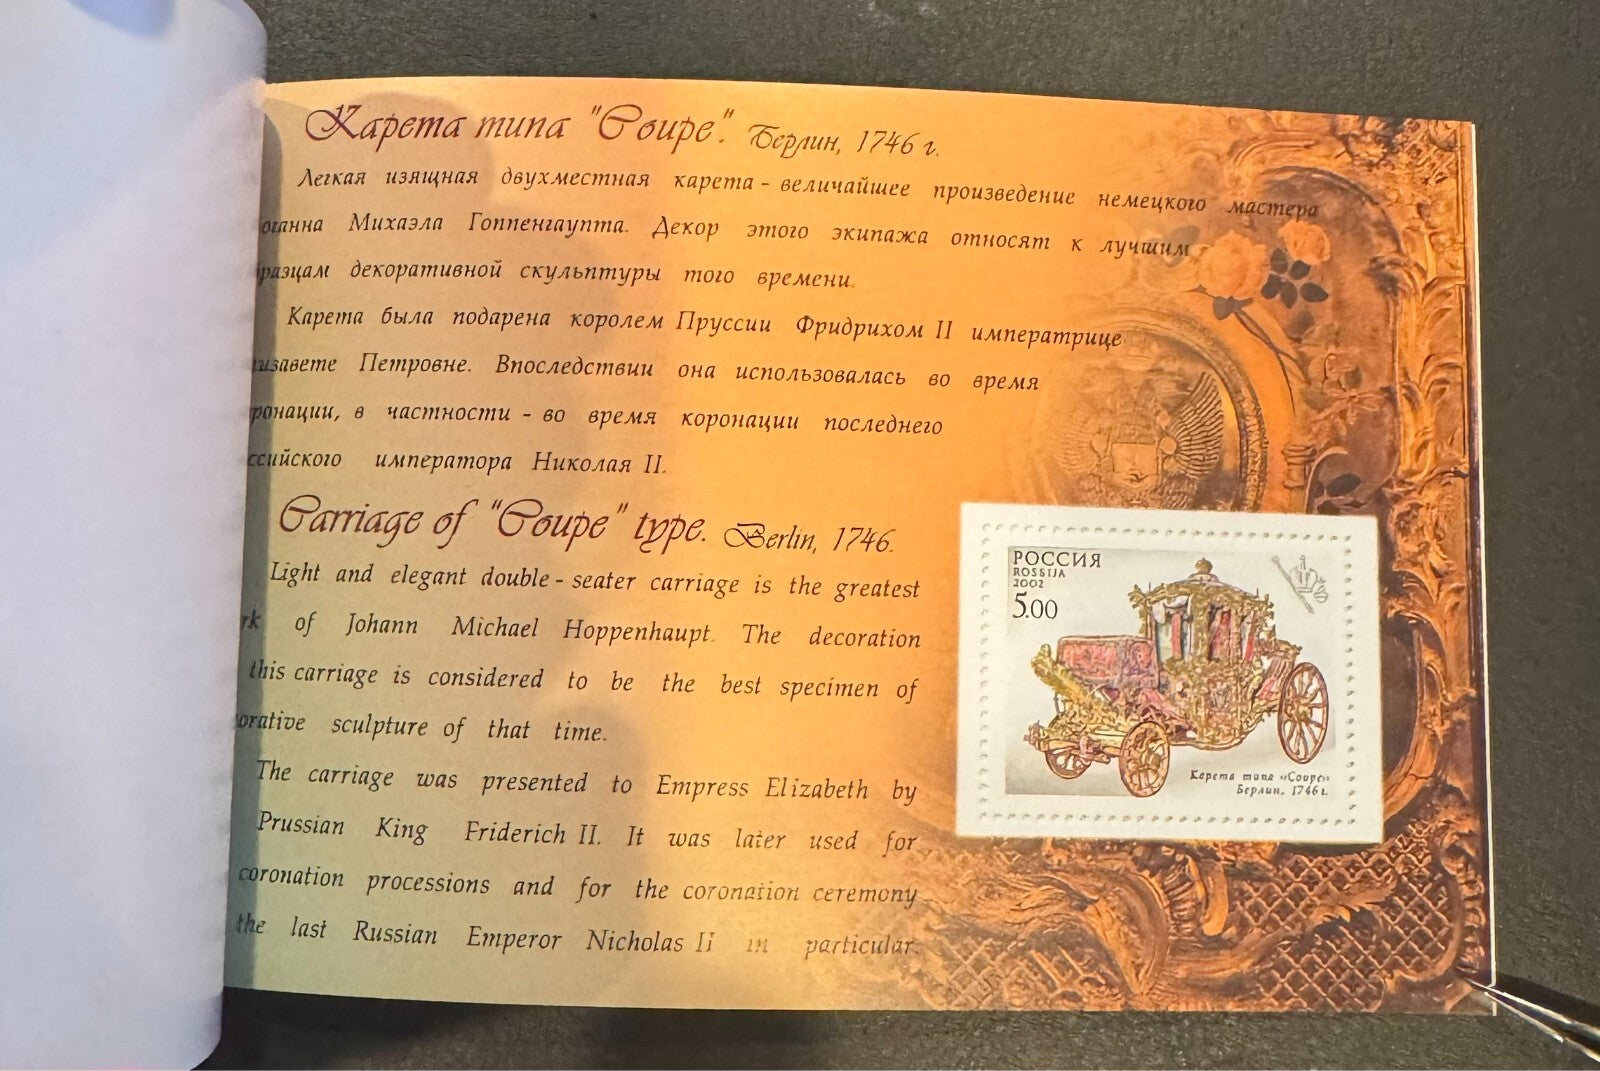 Карета типа "Coupe". Берлин, 1746 г.
Легкая изящная двухместная карета - величайшее произведение немецкого мастера
оганна Михаэла Гоппенгаупта. Декор этого экипажа относят к лучшим
разцам декоративной скульптуры того времени.
Карета была подарена королем Пруссии Фридрихом II императрице
изавете Петровне. Впоследствии она использовалась во время
ронации, в частности - во время коронации последнего
ссийского императора Николая II.
Carriage of "Coupe" type. Berlin, 1746.
Light and elegant double - seater carriage is the greatest
rk of Johann Michael Hoppenhaupt. The decoration
this carriage is considered to be the best specimen of
orative sculpture of that time.
The carriage was presented to Empress Elizabeth by
Prussian King Friderich II. It was later used for
coronation processions and for the coronation ceremony
the last Russian Emperor Nicholas II in particular.
РОССИЯ
ROSSIJA
2002
5.00
Карета типа «Coupe»
Берлин. 1746 г.